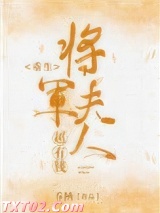 <重生>
将軍
夫人
超有钱
[作品]
TXT02.Com